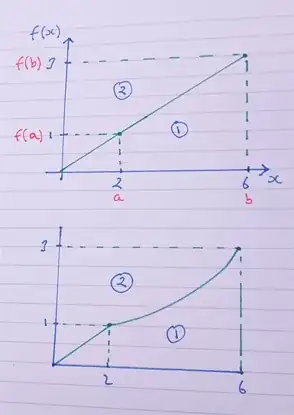 f(x)
f(b) 3
②
f(a) 1
①
2 6 x
a b
3
②
1
①
2 6